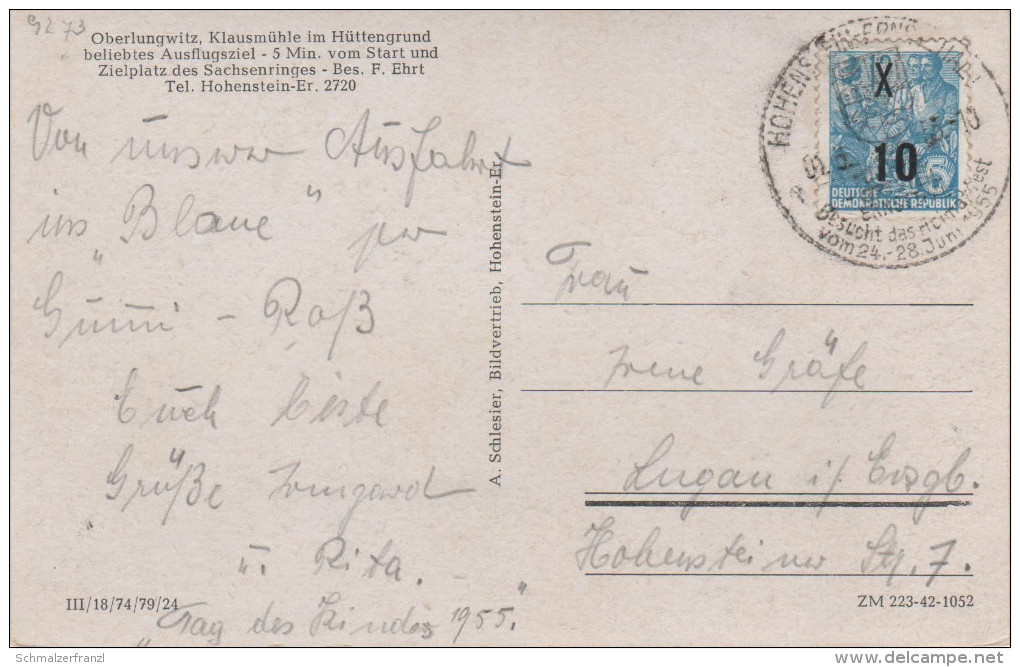 9273
Oberlungwitz, Klausmühle im Hüttengrund
beliebtes Ausflugsziel - 5 Min. vom Start und
Zielplatz des Sachsenringes - Bes. F. Ehrt
Tel. Hohenstein-Er. 2720
Von unsrer Ausfahrt
ins „Blaue" per
Gummi - Roß
Euch beste
Grüße Irmgard
u. Rita.
„Tag des Kindes 1955."
III/18/74/79/24
A. Schlesier, Bildvertrieb, Hohenstein-Er.
X
10
5
DEUTSCHE
DEMOKRATISCHE REPUBLIK
HOHENSTEIN-ERNSTTHAL
-10
Besucht das
vom 24.-28. Juni 1955
Frau
Irene Gräfe
Lugau i/ Erzgb.
Hohensteiner Str. 7.
ZM 223-42-1052
Schmalzerfranzl
delcampe.net